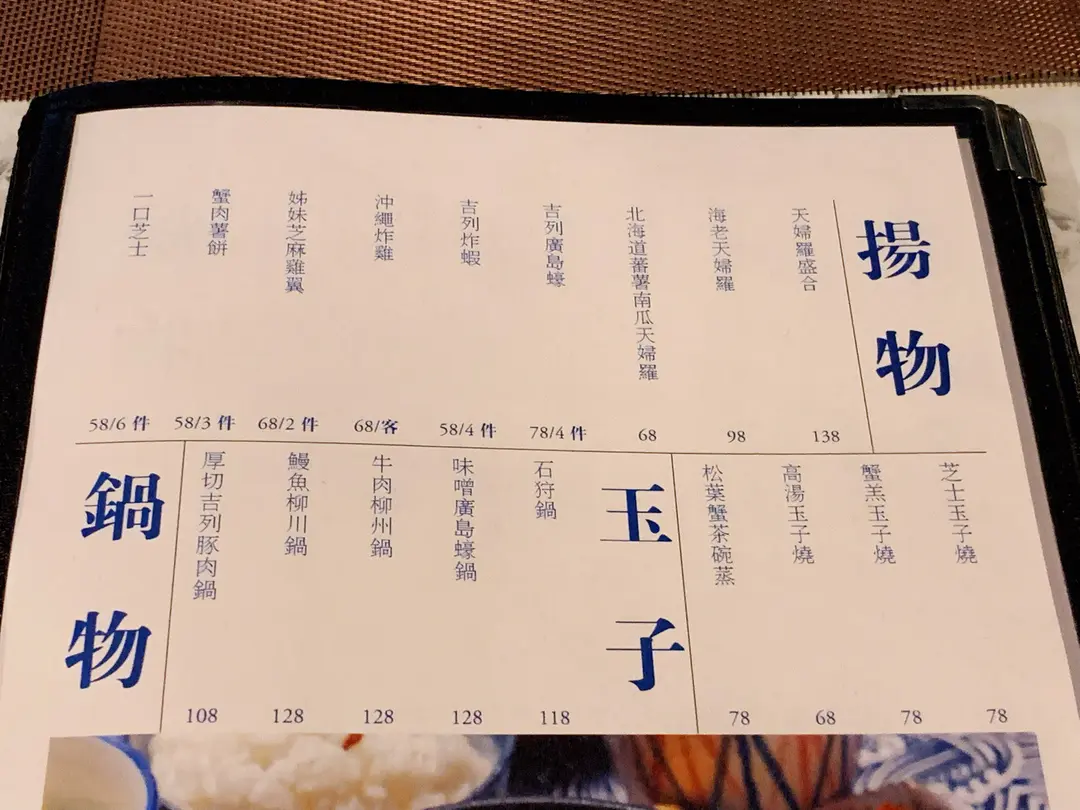 揚物
天婦羅盛合
138
海老天婦羅
98
北海道蕃薯南瓜天婦羅
68
吉列廣島蠔
78/4 件
吉列炸蝦
58/4 件
沖繩炸雞
68/客
姊妹芝麻雞翼
68/2 件
蟹肉薯餅
58/3 件
一口芝士
58/6 件
芝士玉子燒
78
蟹羔玉子燒
78
高湯玉子燒
68
松葉蟹茶碗蒸
78
玉子
石狩鍋
118
味噌廣島蠔鍋
128
牛肉柳州鍋
128
鰻魚柳川鍋
128
厚切吉列豚肉鍋
108
鍋物